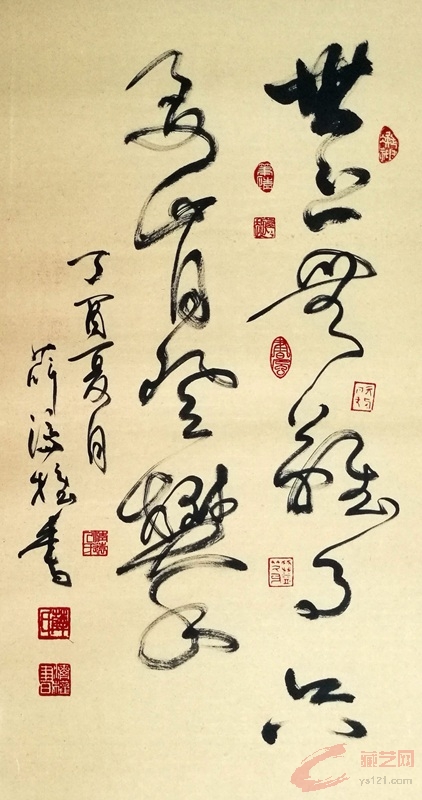 世上無難事只
要肯登攀
丁酉夏月
薛 書
藏艺网
ys121.com